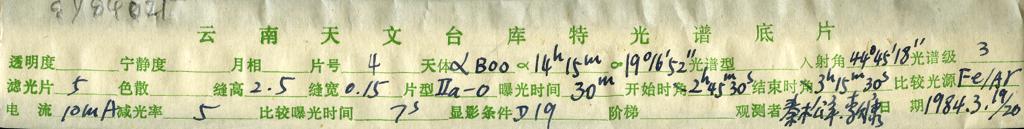 云南天文台库特光谱底片
透明度 宁静度 月相 片号 4 天体 α Boo α 14ʰ15ᵐ 19°16′52″ 光谱型 入射角 44°45′18″ 光谱级 3
滤光片 5 色散 缝高 2.5 缝宽 0.15 片型 IIa-O 曝光时间 30ᵐ 开始时角 2ʰ45ᵐ30ˢ 结束时角 3ʰ15ᵐ30ˢ 比较光源 Fe/Ar
电流 10mA 减光率 5 比较曝光时间 7ˢ 显影条件 D19 阶梯 观测者 日期 1984.3.19/20